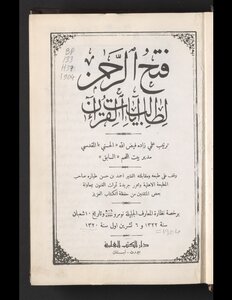 BP
133
H37
1904
فتح الرحمن
لطالب آيات القرآن
ترتيب علمي زاده فيض الله الحسني المقدسي
مدير بيت اللحم السابق
وقف على طبعه ومقابلته الفقير احمد بن حسن طباره صاحب
المطبعة الاهلية ومحرر جريدة ثمرات الفنون بمعاونة
بعض المتقنين من حفظة الكتاب العزيز
برخصة نظارة المعارف الجليلة نومرو وتاريخ ١٠ شعبان
سنة ١٣٢٢ و ٦ تشرين اول سنة ١٣٢٠
دار الكتب العلمية
بيروت - لبنان